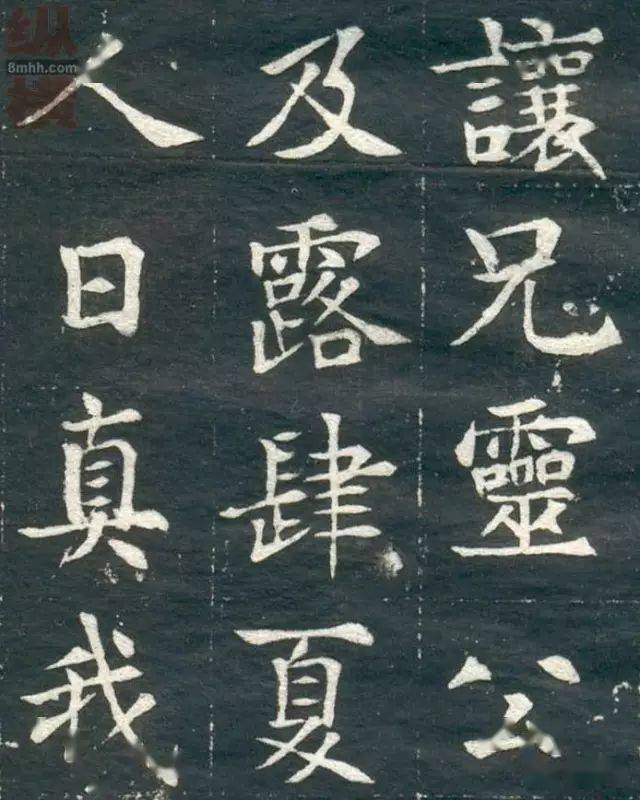 讓兄靈公
及露肆夏
人日真我
8mhh.com